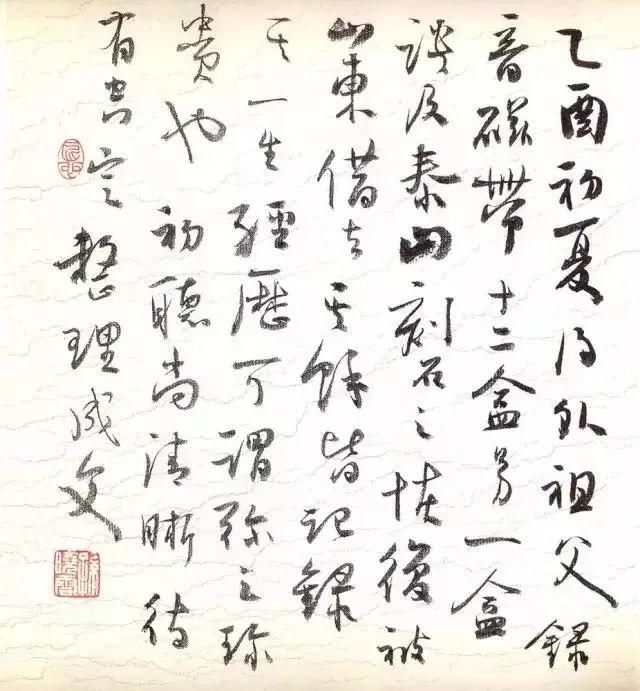 乙酉初夏得外祖父錄
音磁帶十二盒另一盒
談及泰山刻石之恢復被
山東借去其餘皆記錄
其一生經歷可謂珍之珍
貴也 初聽尚清晰待
有空定整理成文